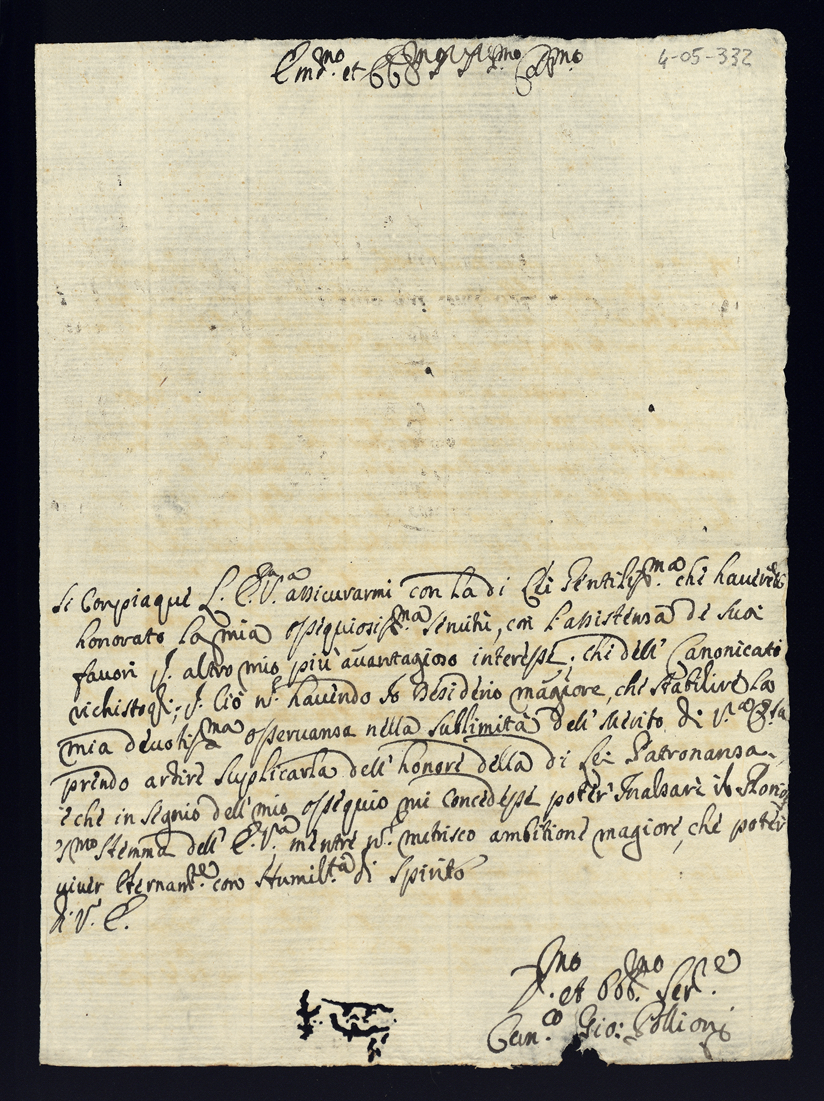 4-05-332
Em.mo et
Si Compiaque L. E.za V.a assicurarmi con la di Lei Gentiliss.ma che haverebe
honorato la mia ossequiosiss.ma servitù, con l'assistenza de suoi
favori p. altro mio più avantagioso interesse, che dell' Canonicato
richistogli; p. ciò n. havendo Io Desiderio magiore, che stabilire la
mia devotiss.ma osservanza nella sublimità dell' Merito di V.a
prendo ardire suplicarla dell' honore della di Lei Patronanza,
e che in segnio dell' mio ossequio mi concedesse poter Inalsare il
Stemma dell' E. V.a mentre n. nutrisco ambitione magiore, che poter
viver eternam.te con Humilt.a di Spirito
di V. E.
D.mo et Obb.mo Ser.e
Can.co Gio: Pollioni